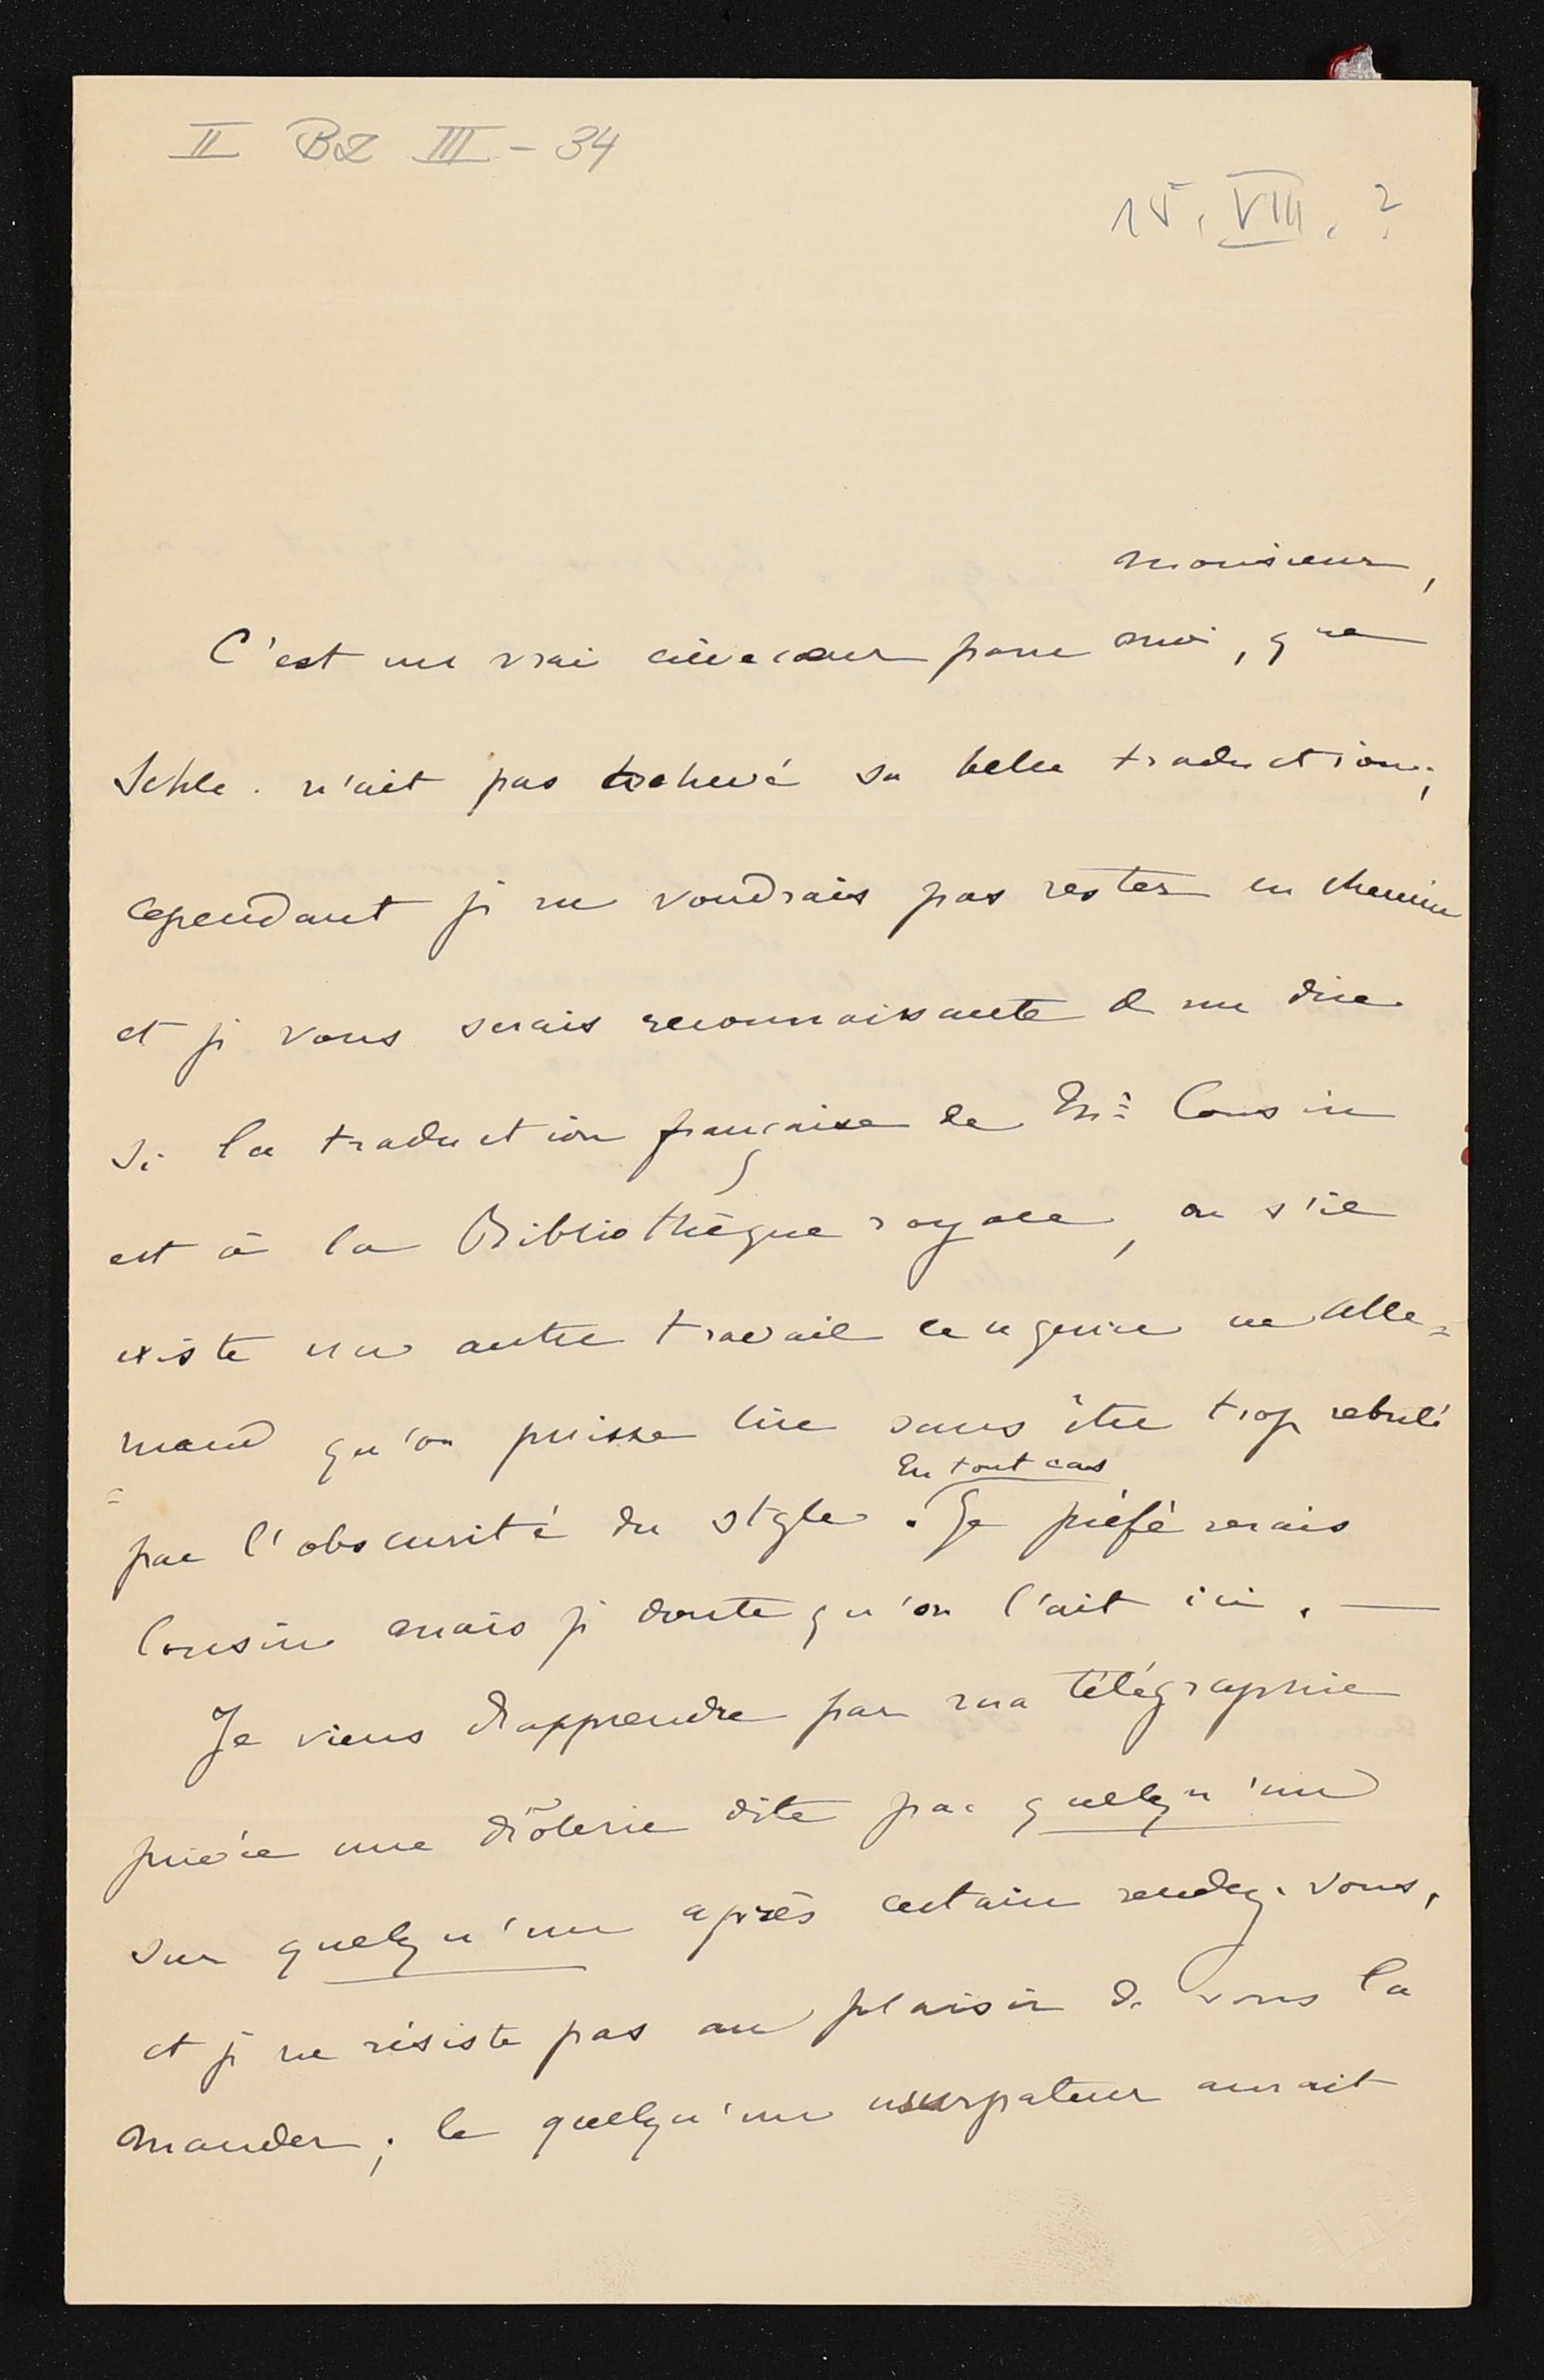 II BZ III - 34
15. VIII. ?
Monsieur,
C'est un vrai crèvecœur pour moi, que
Schle. n'ait pas achevé sa belle traduction;
cependant je ne voudrais pas rester en chemin
et je vous serais reconnaissante de me dire
si la traduction française de Mr. Cousin
est à la Bibliothèque royale, ou s'il
existe un autre travail ce genre en alle=
=mand qu'on puisse lire sans être trop rebuté
par l'obscurité du style. En tout cas Je préférerais
Cousin mais je doute qu'on l'ait ici. —
Je viens d'apprendre par ma télégraphie
privée une drôlerie dite par quelqu'un
sur quelqu'un après certain rendez-vous,
et je ne résiste pas au plaisir de vous la
mander; le quelqu'un usurpateur aurait